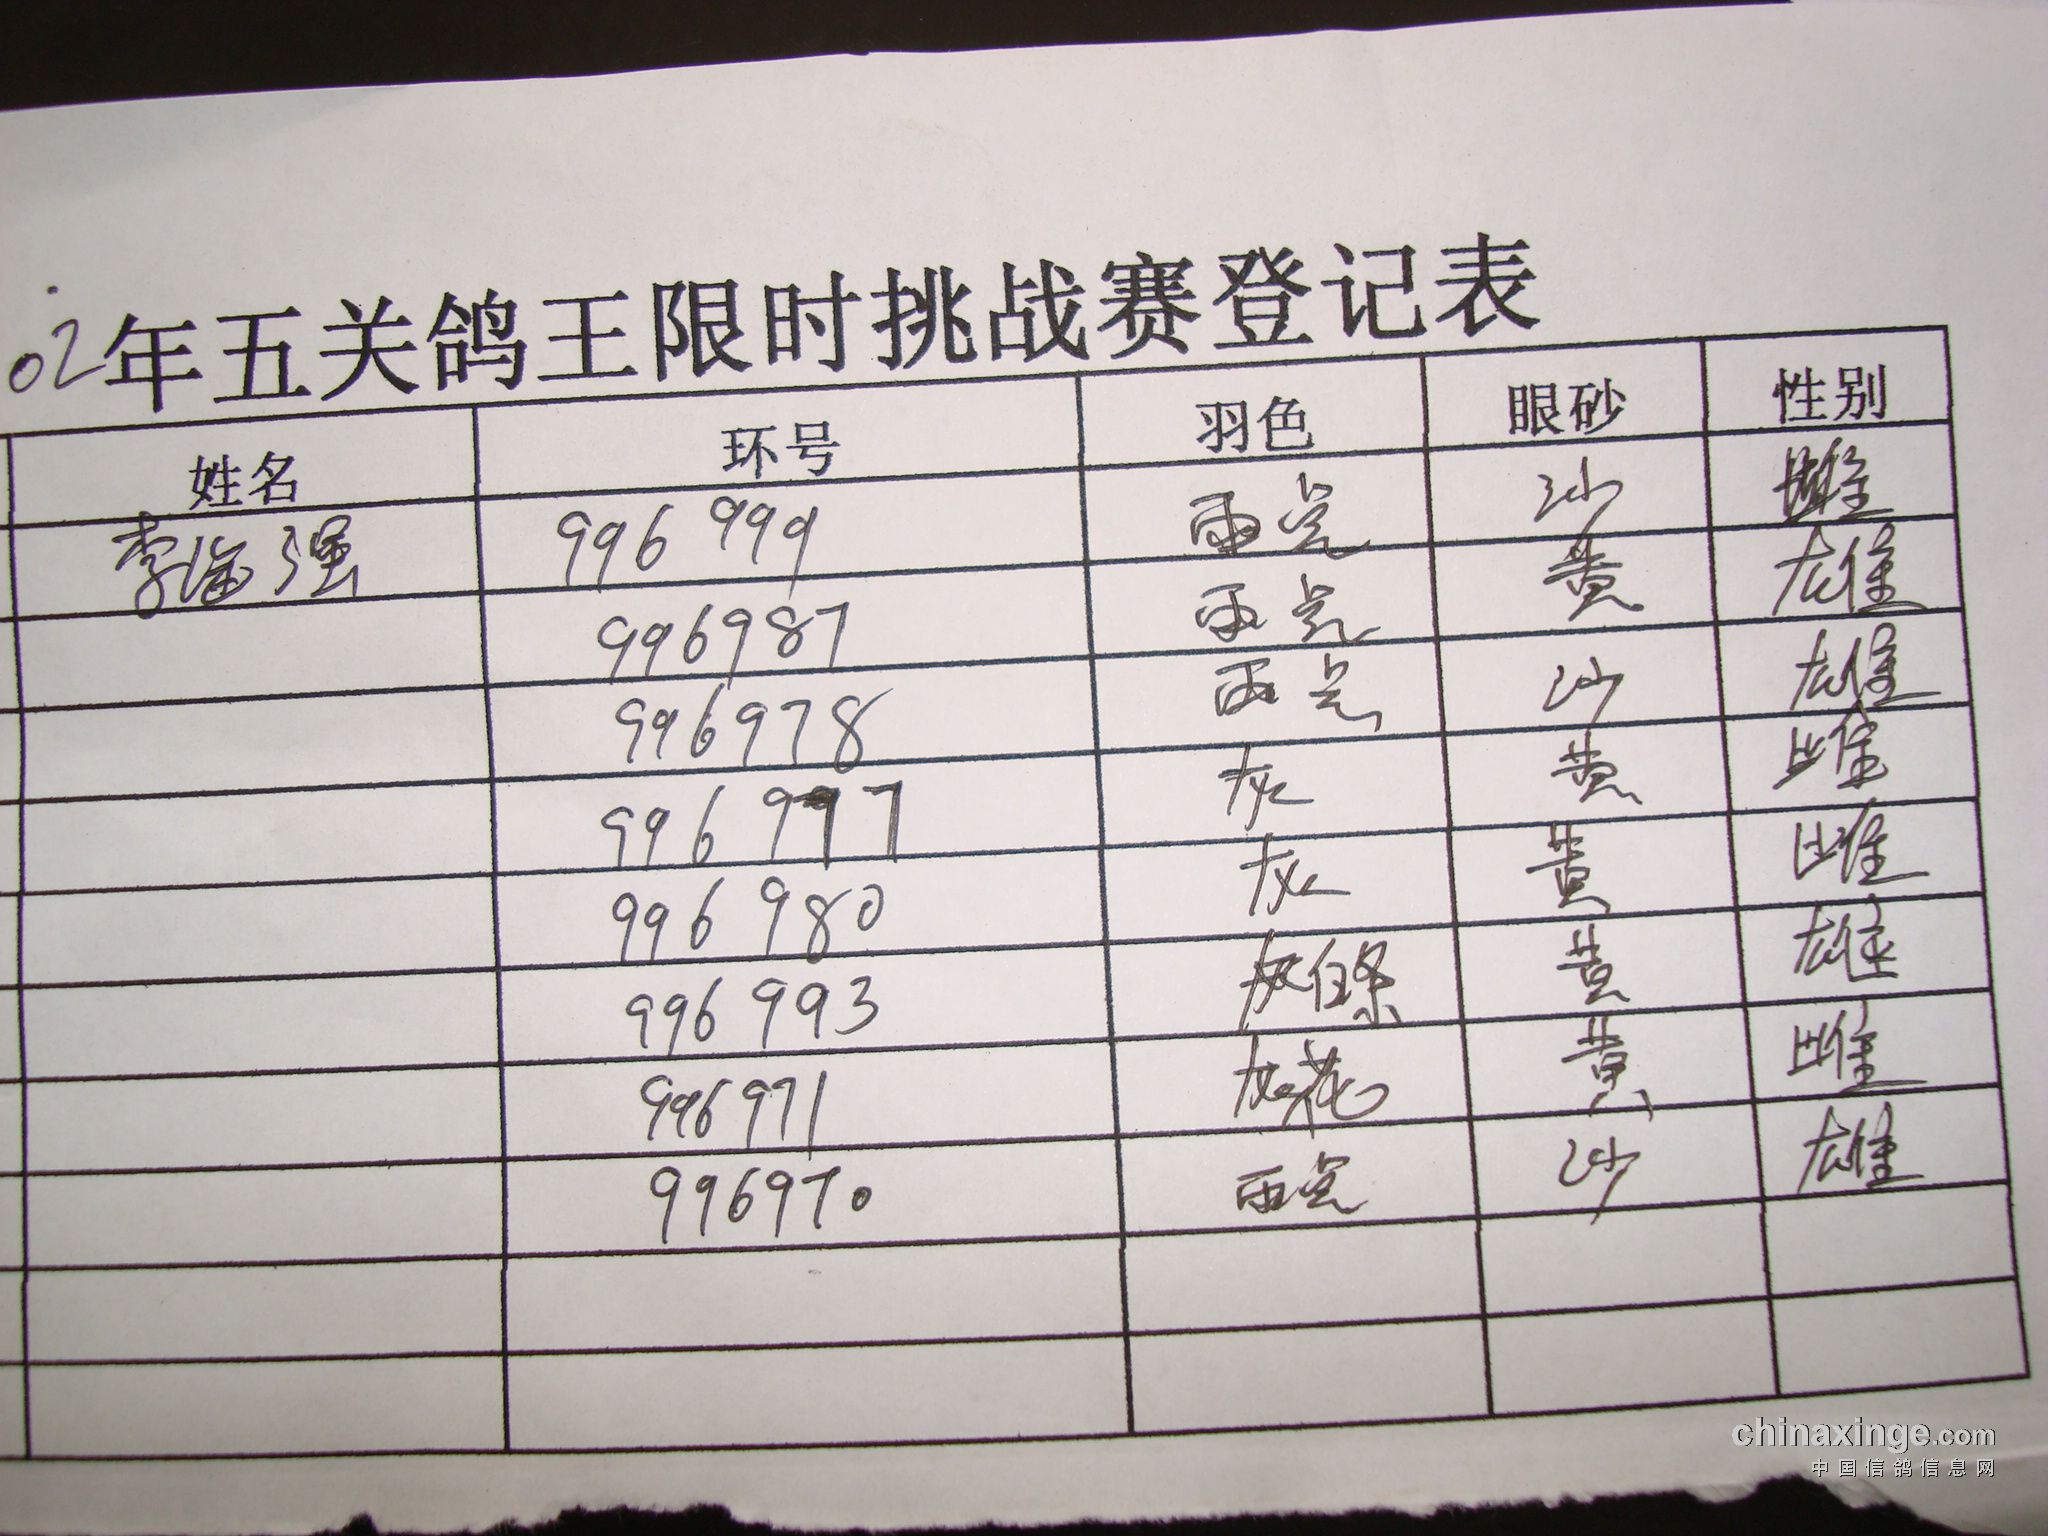 02年五关鸽王限时挑战赛登记表
姓名 环号 羽色 眼砂 性别
李海强 996999 雨点 沙 雌
996987 雨点 黄 雄
996978 雨点 沙 雄
996977 灰 黄 雌
996980 灰 黄 雌
996993 灰白条 黄 雄
996971 灰花 黄 雌
996970 雨点 沙 雄
chinaxinge.com
中国信鸽信息网